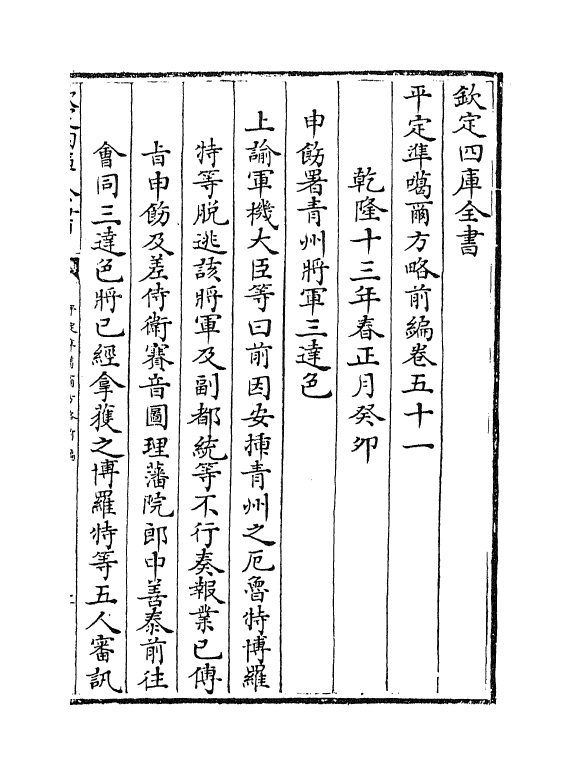 欽定四庫全書
平定準噶爾方略前編卷五十一
乾隆十三年春正月癸卯
申飭署青州將軍三達色
上諭軍機大臣等曰前因安揷青州之厄魯特博羅
特等脱逃該將軍及副都統等不行奏報業已傳
㫖申飭及差侍衛賽音圖理藩院郎中善泰前往
會同三達色將已經拿獲之博羅特等五人審訊